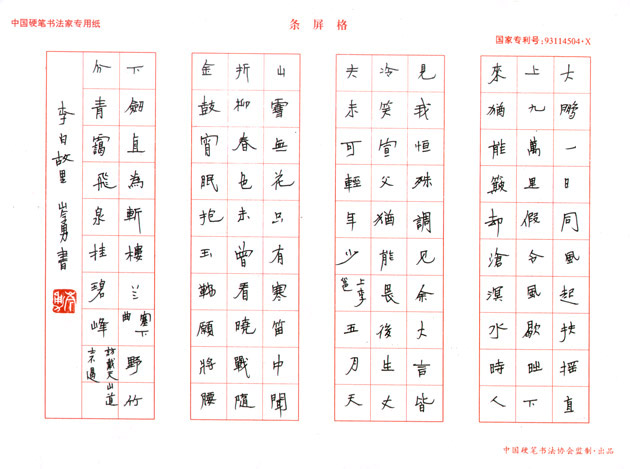 中国硬笔书法家专用纸
条屏格
国家专利号:93114504·X
大鵬一日同風起扶摇直
上九萬里假令風歇時下
來猶能簸却滄溟水時人
見我恒殊調见余大言皆
冷笑宣父猶能畏後生丈
夫未可輕年少上李邕五月天
山雪無花只有寒笛中聞
折柳春色未曾看曉戰隨
金鼓宵眠抱玉鞍願將腰
下劍直為斬樓兰塞下曲野竹
分青靄飛泉挂碧峰访戴天山道士不遇
李白故里 岑勇書
中国硬笔书法协会监制·出品